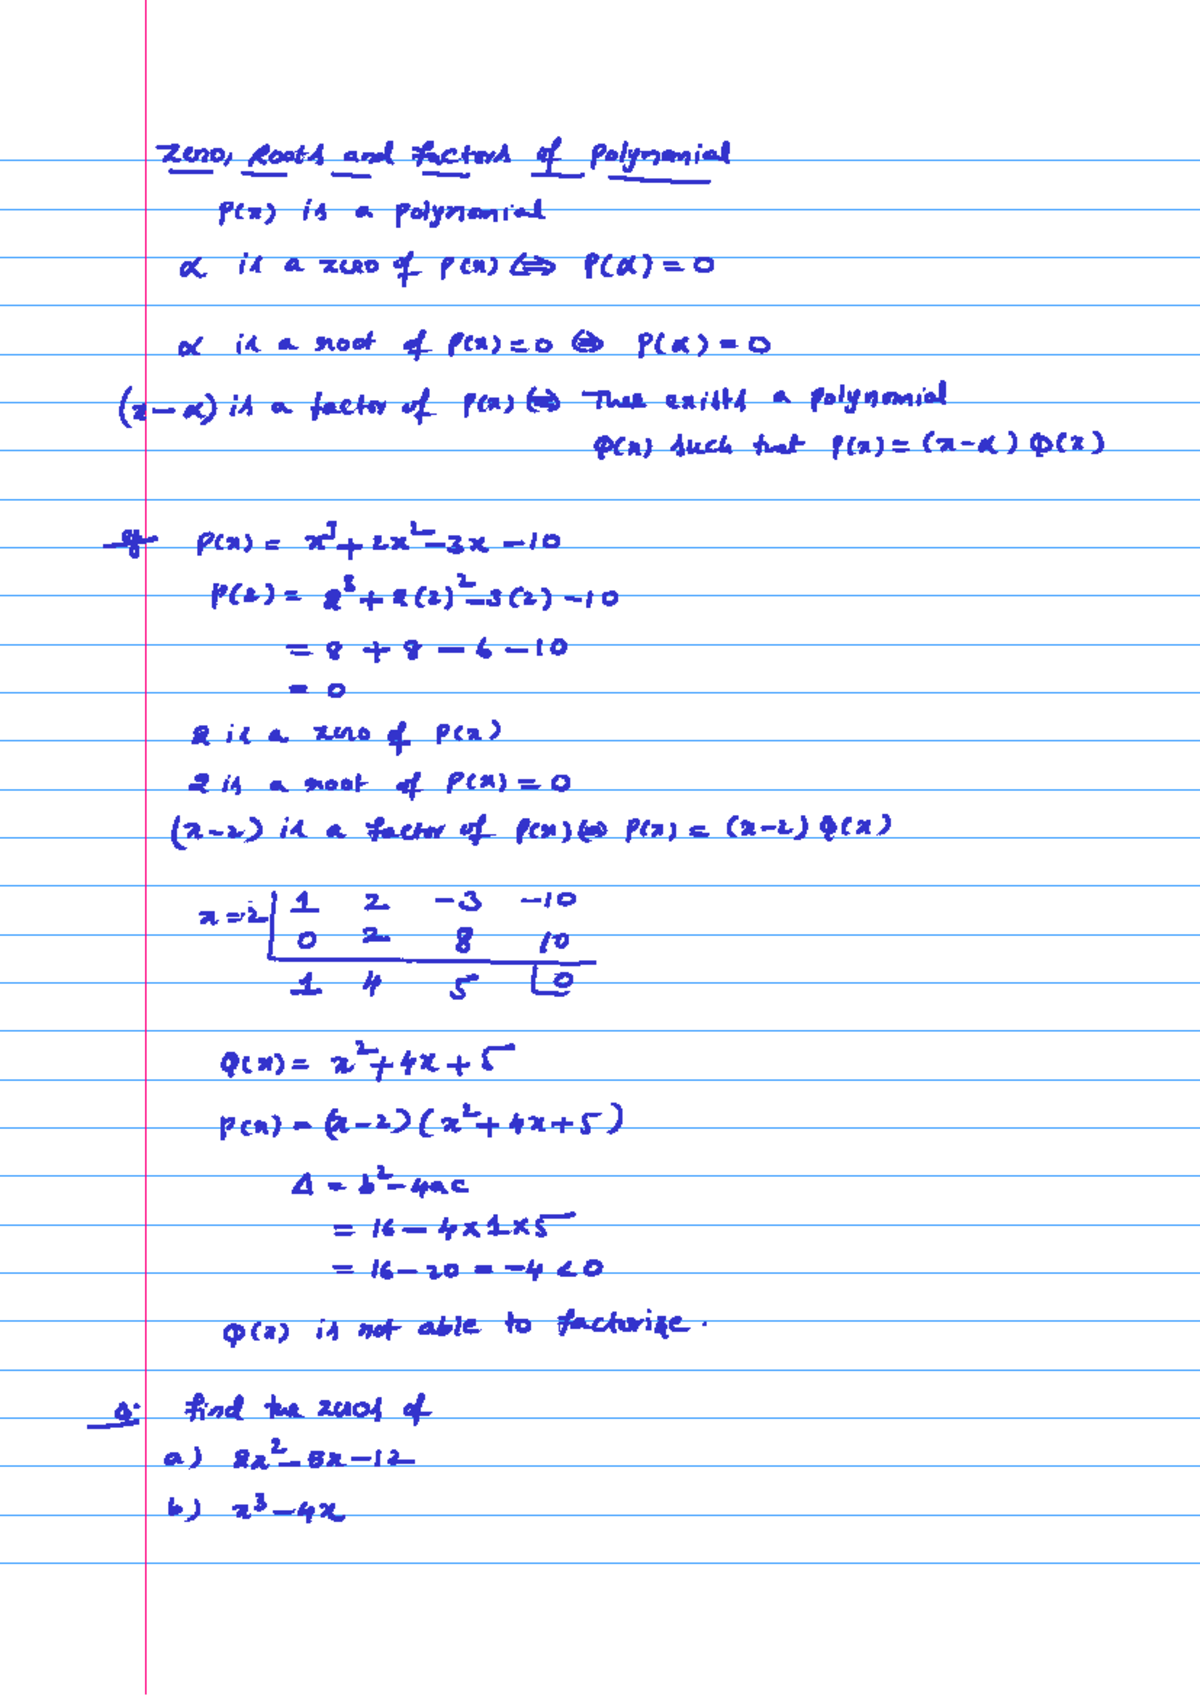 Zero, Roots and factors of polynomial
P(x) is a polynomial
α is a zero of P(x) ⇔ P(α) = 0
α is a root of P(x) = 0 ⇔ P(α) = 0
(x - α) is a factor of P(x) ⇔ There exists a polynomial
Q(x) such that P(x) = (x - α) Q(x)
eg P(x) = x³ + 2x² - 3x - 10
P(2) = 2³ + 2(2)² - 3(2) - 10
= 8 + 8 - 6 - 10
= 0
2 is a zero of P(x)
2 is a root of P(x) = 0
(x - 2) is a factor of P(x) ⇔ P(x) = (x - 2) Q(x)
x = 2 | 1 2 -3 -10
0 2 8 10
1 4 5 | 0
Q(x) = x² + 4x + 5
P(x) = (x - 2) (x² + 4x + 5)
Δ = b² - 4ac
= 16 - 4 x 1 x 5
= 16 - 20 = -4 < 0
Q(x) is not able to factorize.
Q. find the zeros of
a) 2x² - 5x - 12
b) x³ - 4x